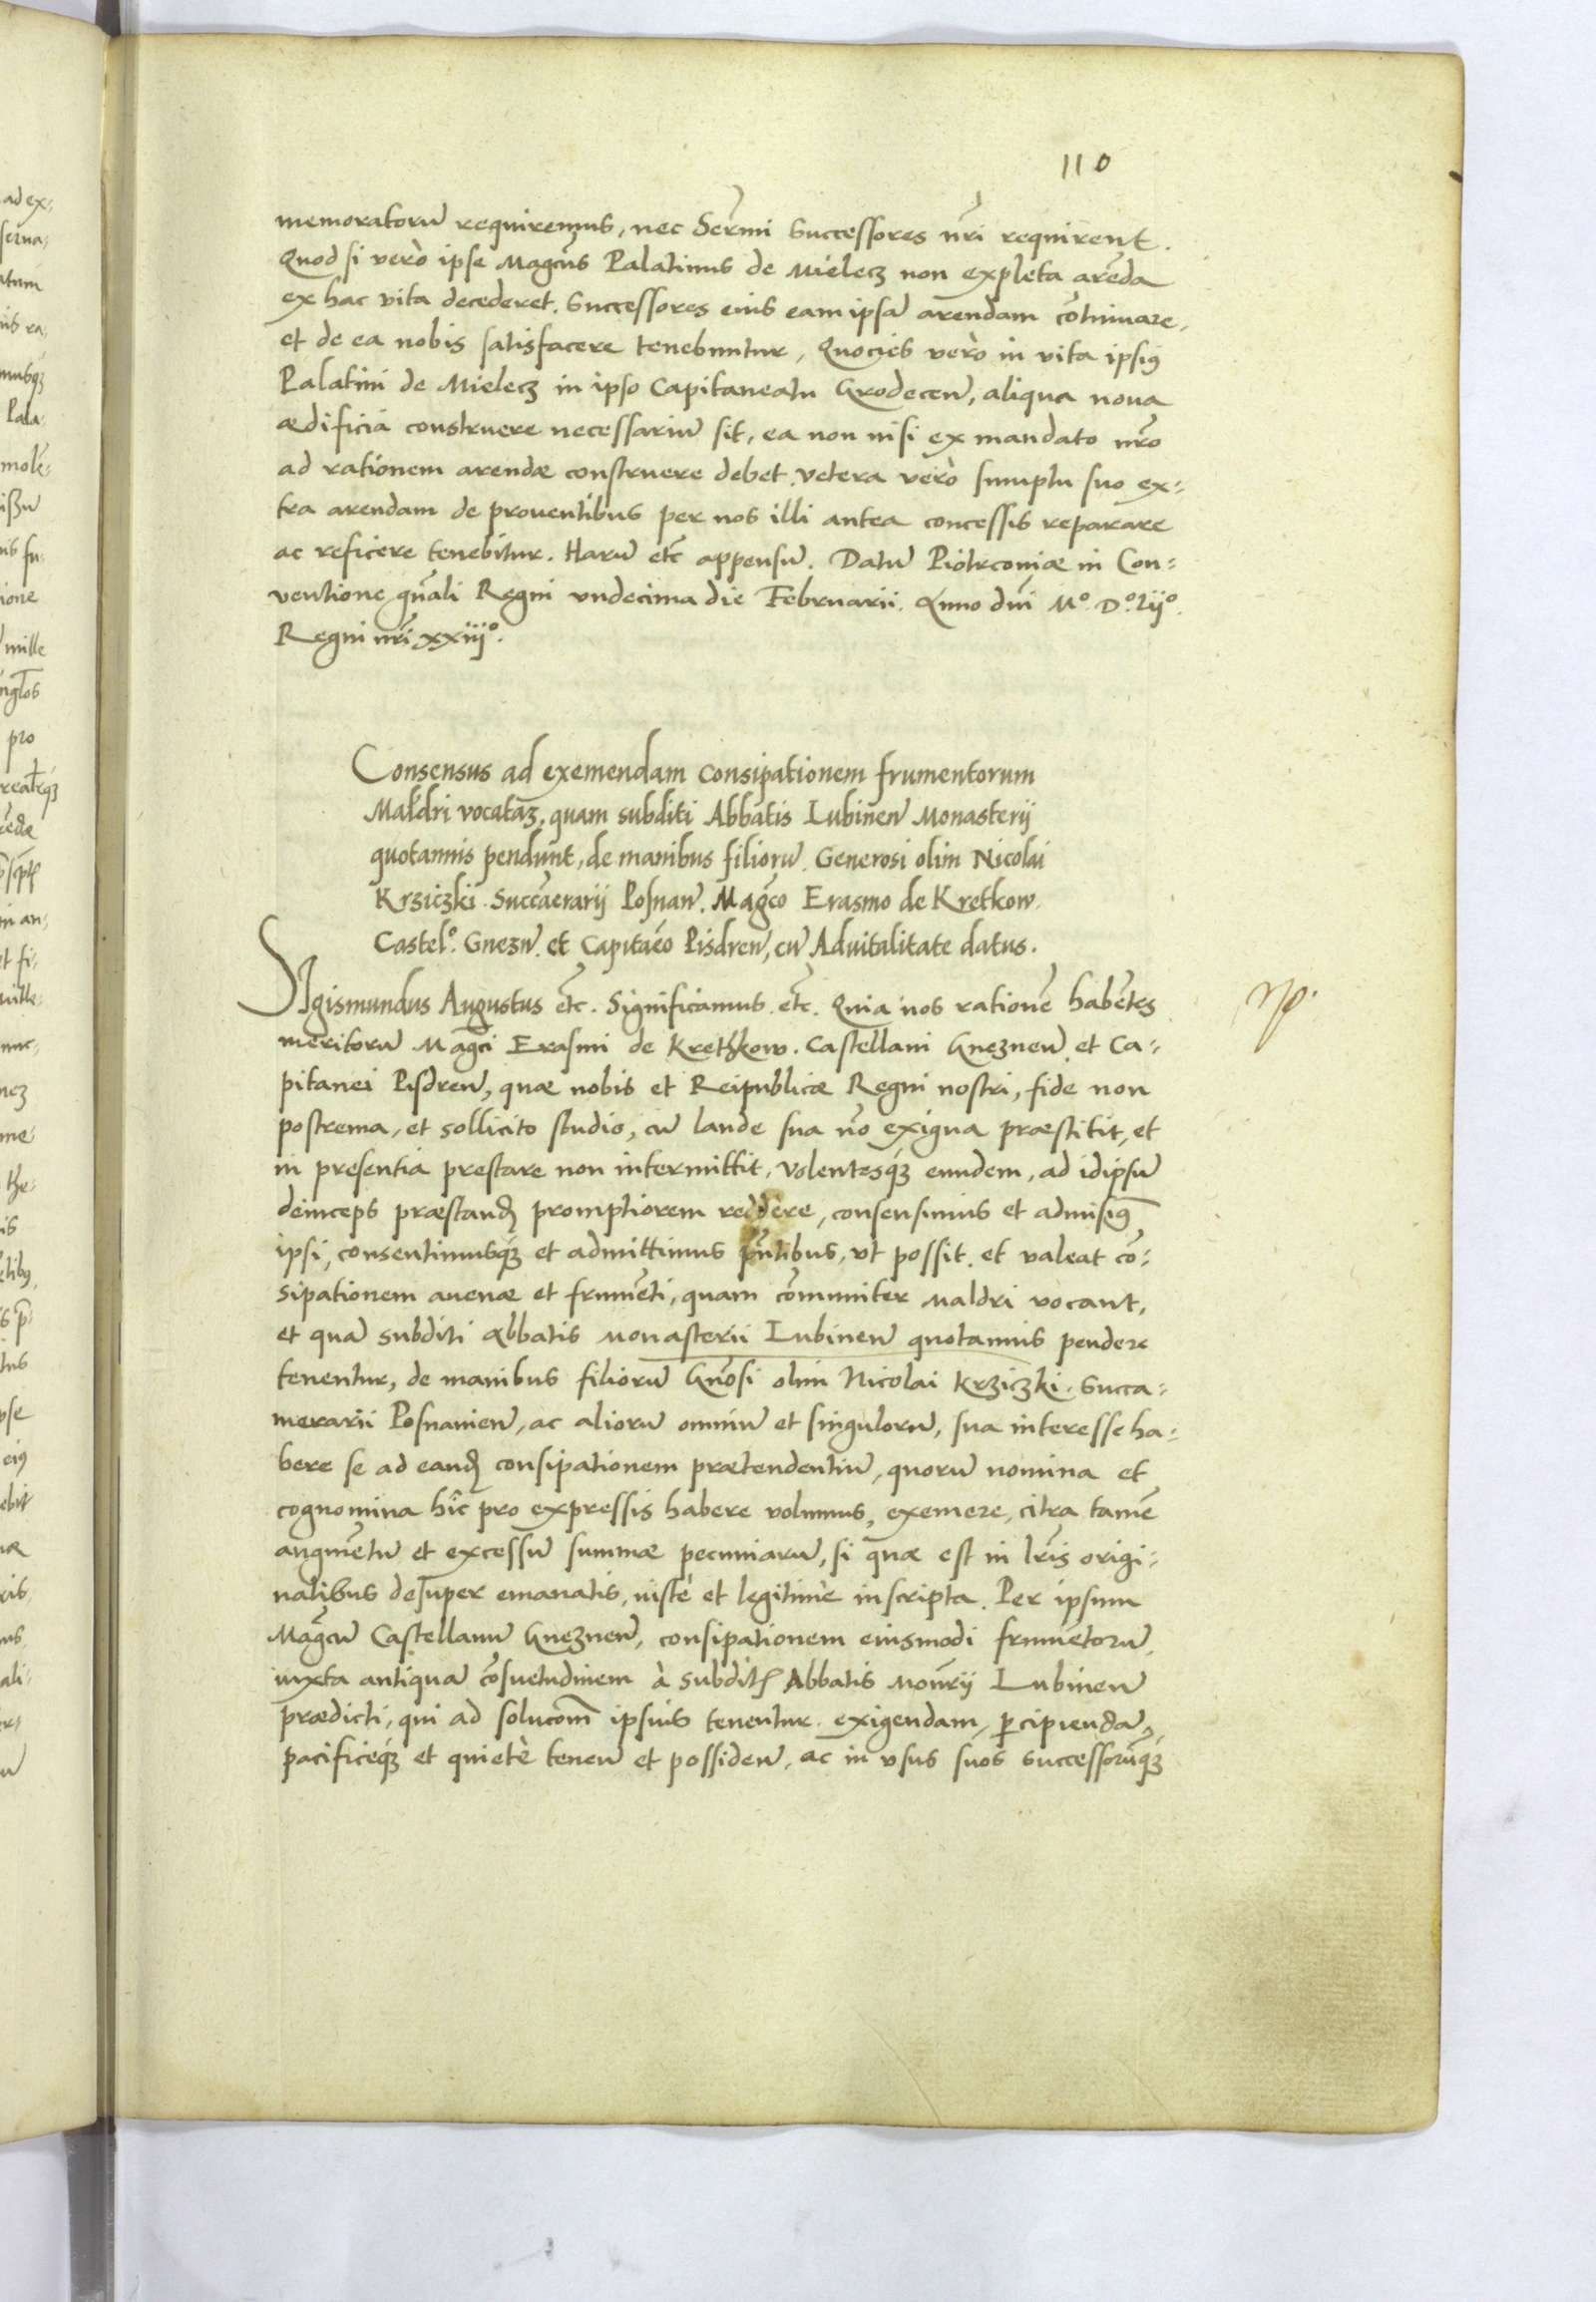 110
memoratorũ requiremus, nec Serm̃i Successores nr̃i requirent.
Quod si verò ipse Magc̃us Palatinus de Mielecz non expleta arẽda
ex hac vita decederet. Successores eius eam ipsã arendam cõtinuare,
et de ea nobis satisfacere tenebuntur, Quocies verò in vita ipsiꝰ
Palatini de Mielecz in ipso Capitaneatu Grodecen̄, aliqua noua
ædificia construere necessariũ sit, ea non nisi ex mandato nr̃o
ad rationem arendæ construere debet. Vetera verò sumptu suo ex-
tra arendam de prouentibus per nos illi antea concessis reparare
ac reficere tenebitur. Harũ etc̃ appensũ. Datũ Piotrcoviæ in Con-
ventione gn̄ali Regni vndecima die Februarii. Anno dñi Mº. Dº. Lijº.
Regni nr̃i xxiijº.
Consensus ad exemendam consipationem frumentorum
Maldri vocatam, quam subditi Abbatis Lubinen̄ Monasterij
quotannis pendunt, de manibus filiorũ. Generosi olim Nicolai
Krziczki. Succãerarij Posnan̄. Magc̃o Erasmo de Kretkow.
Castelº. Gnezn̄. et Capitãeo Pisdren̄, cũ Aduitalitate datus.
Sigismundus Augustus etc̃. Significamus. etc̃. Quia nos rationẽ habẽtes
meritorũ Magc̃i Erasmi de Krethkow. Castellani Gneznen̄ et Ca-
pitanei Pisdren̄, quæ nobis et Reipublicæ Regni nostri, fide non
postrema, et sollicito studio, cũ laude sua nõ exigua præstitit, et
in presentia prestare non intermittit, volentesqꝫ eundem, ad idipsũ
deinceps præstandꝭ promptiorem reddere, consensimus et admisimꝰ
ipsi, consentimusqꝫ et admittimus pñtibus, vt possit. et valeat cõ-
sipationem auenæ et frumẽti, quam cõmuniter maldri vocant,
et quã subditi Abbatis Monasterii Lubinen̄ quotannis pendere
tenentur, de manibus filiorũ Gñosi olim Nicolai Krziczki. Succa-
merarii Posnanien̄, ac aliorũ omniũ et singulorũ, sua interesse ha-
bere se ad eandꝭ consipationem prætendentiũ, quorũ nomina et
cognomina hîc pro expressis habere volumus, exemere, citra tamẽ
augmẽtũ et excessũ summæ pecuniarũ, si quæ est in lr̃is origi-
nalibus desuper emanatis, iustè et legitimè inscripta. Per ipsum
Magc̃ũ Castellanũ Gneznen̄, consipationem eiusmodi frumẽtorũ,
iuxta antiquã cõsuetudinem à subditꝭ Abbatis Mon̄rij Lubinen̄
prædicti, qui ad solucom̃ ipsius tenentur. exigendam, ꝑcipiendã,
pacificeqꝫ et quietè tenen̄ et possiden̄, ac in vsus suos successorũqꝫ